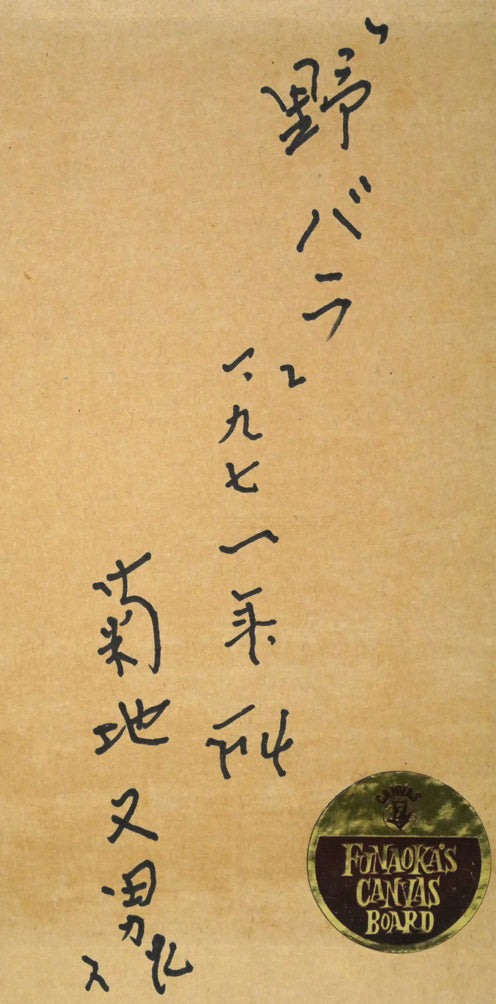 野バラ
一九七一年
菊地又男
CANVAS
FUNAOKA'S
CANVAS
BOARD